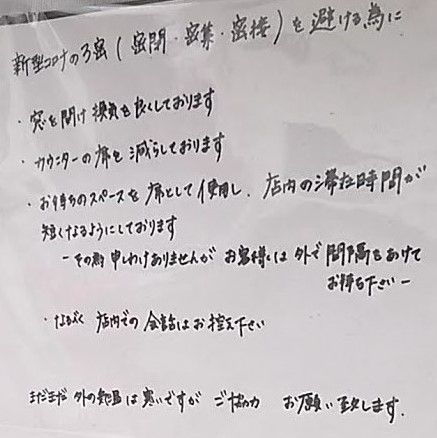 新型コロナの3密(密閉・密集・密接)を避ける為に
・窓を開け換気を良くしております
・カウンターの席を減らしております
・お待ちのスペースを席として使用し、店内の滞在時間が
短くなるようにしております
−その為申しわけありませんがお客様には外で間隔をあけて
お待ち下さい−
・なるべく店内での会話はお控え下さい
まだまだ外の気温は寒いですがご協力お願い致します.